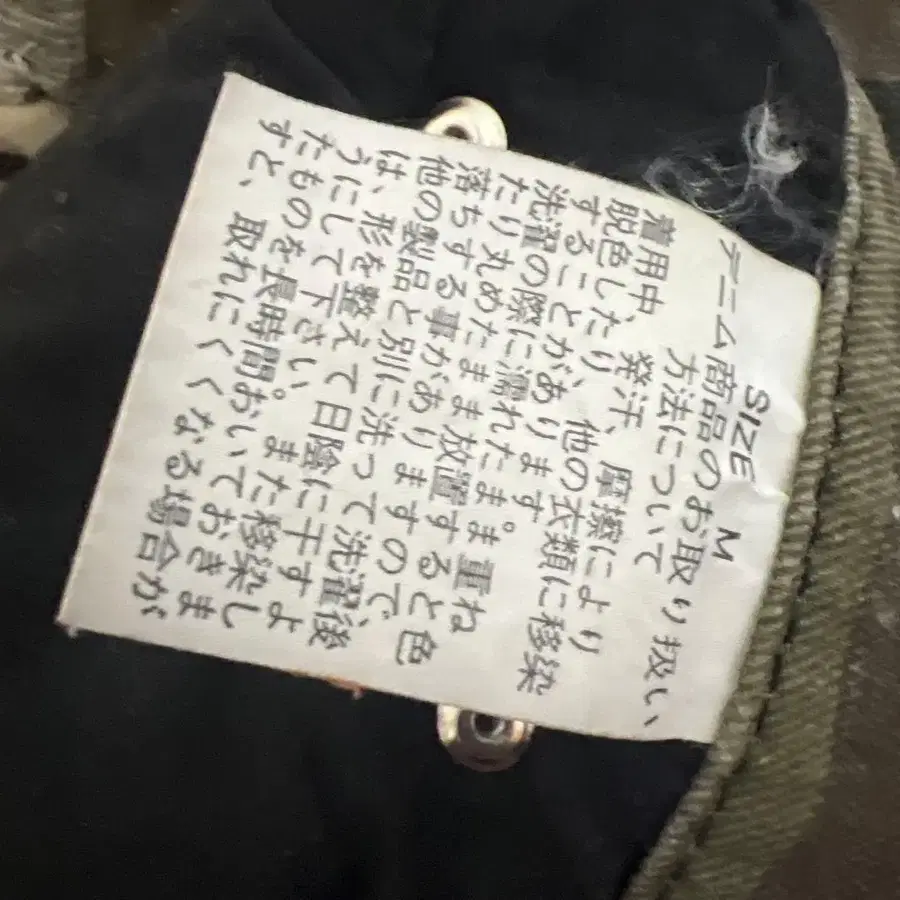 SIZE M
デニム商品のお取り扱い、
方法について
着用中、発汗、摩擦により
脱色したり、他の衣類に移染
することがあります。
洗濯の際に濡れたまま重ね
たり丸めたまま放置すると色
落ちする事がありますので
他の製品と別に洗って洗濯後
は、形を整えて日陰に干すよ
うにして下さい。また移染し
たものを長時間おいておきま
すと、取れにくくなる場合が